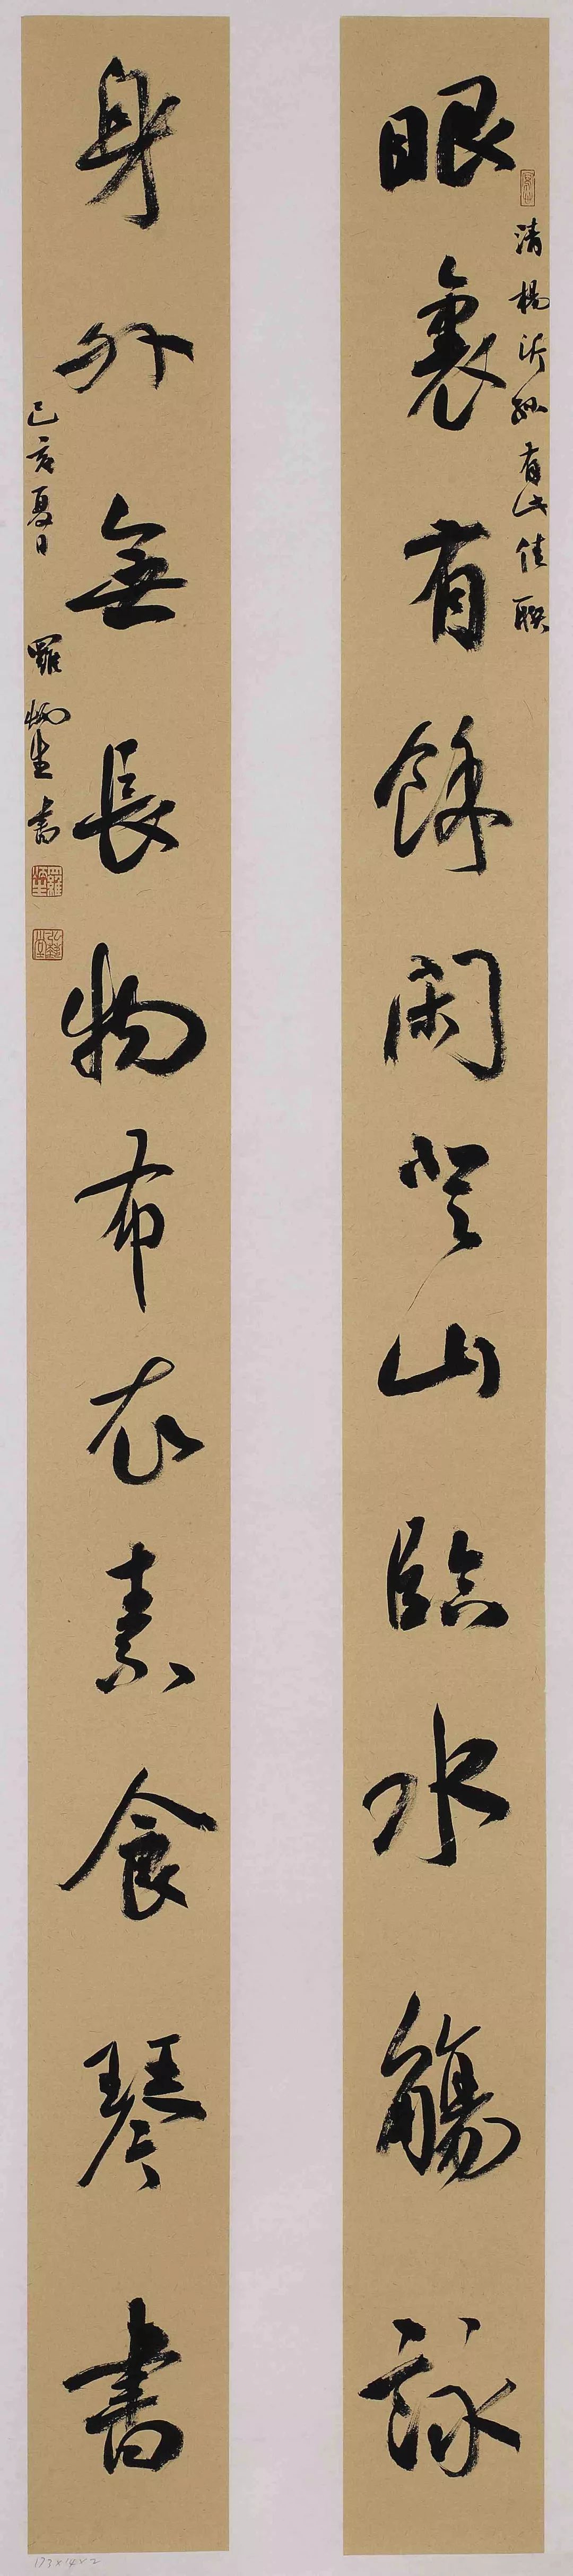 眼裏有餘閑登山臨水觴詠
清楊沂孫有此佳聯
身外無長物布衣素食琴書
己亥夏日
羅炳生書
173×14×2